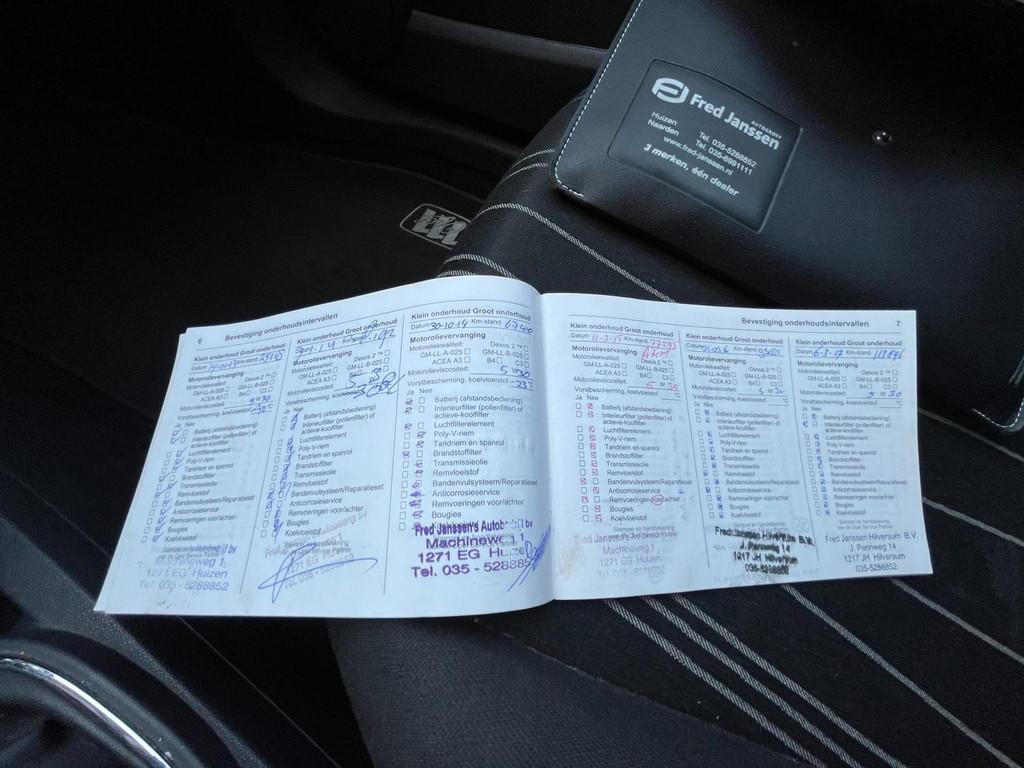 Fred Janssen
AUTOGROEP
Huizen Tel. 035-5288852
Naarden Tel. 035-6991111
www.fred-janssen.nl
3 merken, één dealer
6 Bevestiging onderhoudsintervallen
Klein onderhoud Groot onderhoud
Datum Km-stand
Motorolievervanging
Motoroliekwaliteit: Dexos 2 ™
GM-LL-A-025 GM-LL-B-025
ACEA A3 B4 C3
Motorolieviscositeit: 5W30
Vorstbescherming, koelvloeistof -30°C
Ja Nee
Batterij (afstandsbediening)
Interieurfilter (pollenfilter) of
actieve-koolfilter
Luchtfilterelement
Poly-V-riem
Tandriem en spanrol
Brandstoffilter
Transmissieolie
Remvloeistof
Bandenvulsysteem/Reparatieset
Anticorrosieservice
Remvoeringen voor/achter
Bougies
Koelvloeistof
Machineweg 1,
1271 EG Huizen
Tel. 035 - 5288852
Klein onderhoud Groot onderhoud
Motorolievervanging
Motoroliekwaliteit: Dexos 2 ™
GM-LL-A-025 GM-LL-B-025
ACEA A3 B4 C3
Motorolieviscositeit:
Vorstbescherming, koelvloeistof
Ja Nee
Batterij (afstandsbediening)
Interieurfilter (pollenfilter) of
actieve-koolfilter
Luchtfilterelement
Poly-V-riem
Tandriem en spanrol
Brandstoffilter
Transmissieolie
Remvloeistof
Bandenvulsysteem/Reparatieset
Anticorrosieservice
Remvoeringen voor/achter
Bougies
Koelvloeistof
Klein onderhoud Groot onderhoud
Datum 30-10-14 Km-stand 67410
Motorolievervanging
Motoroliekwaliteit: Dexos 2 ™
GM-LL-A-025 GM-LL-B-025
ACEA A3 B4 C3
Motorolieviscositeit: 5W30
Vorstbescherming, koelvloeistof -23°C
Ja Nee
Batterij (afstandsbediening)
Interieurfilter (pollenfilter) of
actieve-koolfilter
Luchtfilterelement
Poly-V-riem
Tandriem en spanrol
Brandstoffilter
Transmissieolie
Remvloeistof
Bandenvulsysteem/Reparatieset
Anticorrosieservice
Remvoeringen voor/achter
Bougies
Koelvloeistof
Fred Janssen's Autobedrijf bv
Machineweg 1,
1271 EG Huizen
Tel. 035 - 5288852
Bevestiging onderhoudsintervallen 7
Klein onderhoud Groot onderhoud
Datum 11-3-15 Km-stand 77295
Motorolievervanging
Motoroliekwaliteit: Dexos 2 ™
GM-LL-A-025 GM-LL-B-025
ACEA A3 B4 C3
Motorolieviscositeit: 5 W 30
Vorstbescherming, koelvloeistof °C
Ja Nee
Batterij (afstandsbediening)
Interieurfilter (pollenfilter) of
actieve-koolfilter
Luchtfilterelement
Poly-V-riem
Tandriem en spanrol
Brandstoffilter
Transmissieolie
Remvloeistof
Bandenvulsysteem/Reparatieset
Anticorrosieservice
Remvoeringen voor/achter
Bougies
Koelvloeistof
Fred Janssen's Autobedrijf bv
Machineweg 1,
1271 EG Huizen
Tel. 035 - 5288852
Klein onderhoud Groot onderhoud
Datum Km-stand
Motorolievervanging
Motoroliekwaliteit: Dexos 2 ™
GM-LL-A-025 GM-LL-B-025
ACEA A3 B4 C3
Motorolieviscositeit: 5 W 30
Vorstbescherming, koelvloeistof °C
Ja Nee
Batterij (afstandsbediening)
Interieurfilter (pollenfilter) of
actieve-koolfilter
Luchtfilterelement
Poly-V-riem
Tandriem en spanrol
Brandstoffilter
Transmissieolie
Remvloeistof
Bandenvulsysteem/Reparatieset
Anticorrosieservice
Remvoeringen voor/achter
Bougies
Koelvloeistof
Fred Janssen Hilversum B.V.
J. Pennweg 14
1217 JH Hilversum
035-5288852
Klein onderhoud Groot onderhoud
Datum 6-3-17 Km-stand
Motorolievervanging
Motoroliekwaliteit: Dexos 2 ™
GM-LL-A-025 GM-LL-B-025
ACEA A3 B4 C3
Motorolieviscositeit: 5 W 30
Vorstbescherming, koelvloeistof °C
Ja Nee
Batterij (afstandsbediening)
Interieurfilter (pollenfilter) of
actieve-koolfilter
Luchtfilterelement
Poly-V-riem
Tandriem en spanrol
Brandstoffilter
Transmissieolie
Remvloeistof
Bandenvulsysteem/Reparatieset
Anticorrosieservice
Remvoeringen voor/achter
Bougies
Koelvloeistof
Fred Janssen Hilversum B.V.
J. Pennweg 14
1217 JH Hilversum
035-5288852